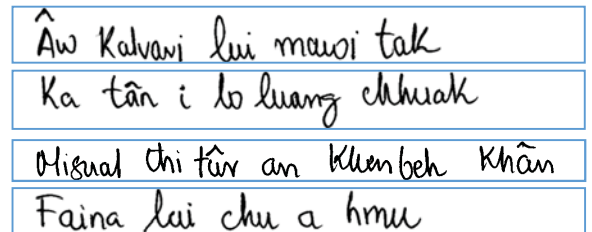 Âw Kalvari lui mawi tak
Ka tân i lo luang chhuak
Misual thi tûr an Khenbeh Khân
Faina lui chu a hmu